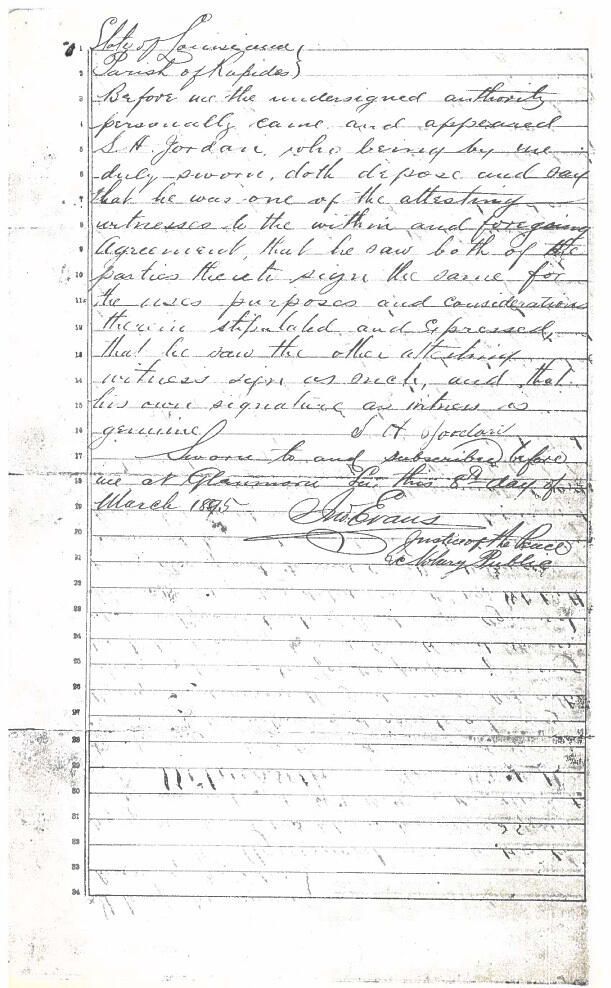 State of Louisiana
Parish of Rapides
Before me the undersigned authority
personally came and appeared
S. H. Jordan, who being by me
duly sworn, doth depose and say
that he was one of the attesting
witnesses to the within and foregoing
Agreement, that he saw both of the
parties thereto sign the same for
the uses purposes and considerations
therein stipulated and expressed,
that he saw the other attesting
witness sign as such, and that
his own signature as witness is
genuine S H
Sworn to and subscribed before
me at Glenmora La. this 8th day of
March 1895
Jno Evans
Justice of the Peace
Notary Public
1
2
3
4
5
6
7
8
9
10
11
12
13
14
15
16
17
18
19
20
21
22
23
24
25
26
27
28
29
30
31
32
33
34